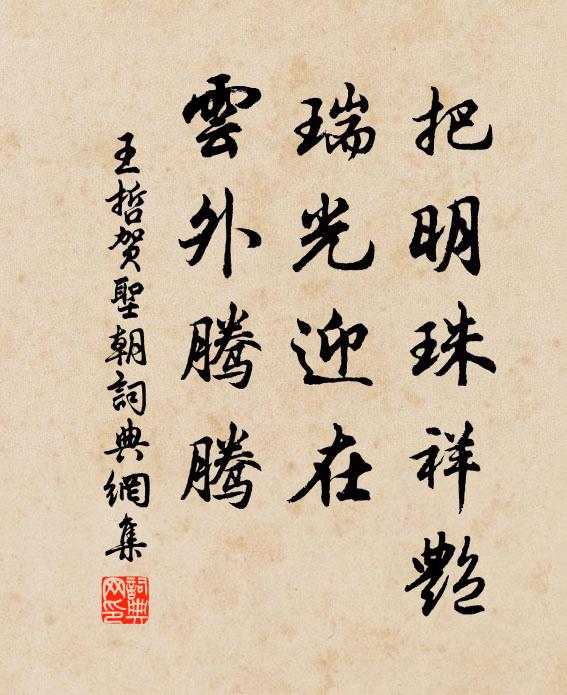 把明珠祥艷
瑞光迎在
雲外騰騰
王哲賀聖朝詞典網集
詞典网印